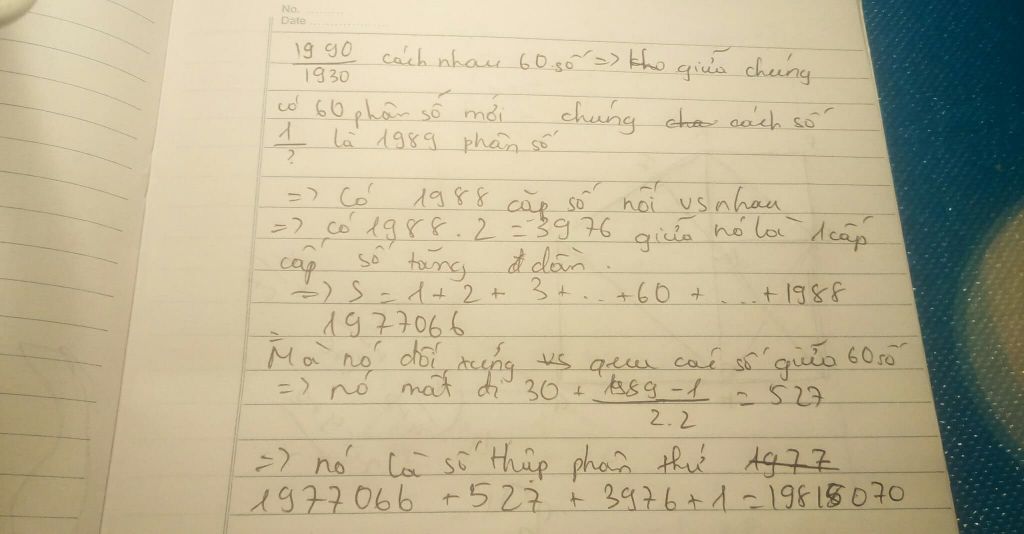 No.
Date
1990/1930 cách nhau 60 số => giữa chúng
có 60 phân số mới chúng cách số
1/? là 1989 phân số
=> Có 1988 cặp số nối vs nhau
=> có 1988.2 = 3976 giữa nó là 1 cấp
cấp số tăng dần.
=> S = 1 + 2 + 3 + .. + 60 + ... + 1988
= 1977066
Mà nó đối xứng vs số giữa 60 số
=> nó mất đi 30 + 1989 - 1/2.2 = 527
=> nó là số thập phân thứ 1977
1977066 + 527 + 3976 + 1 = 070